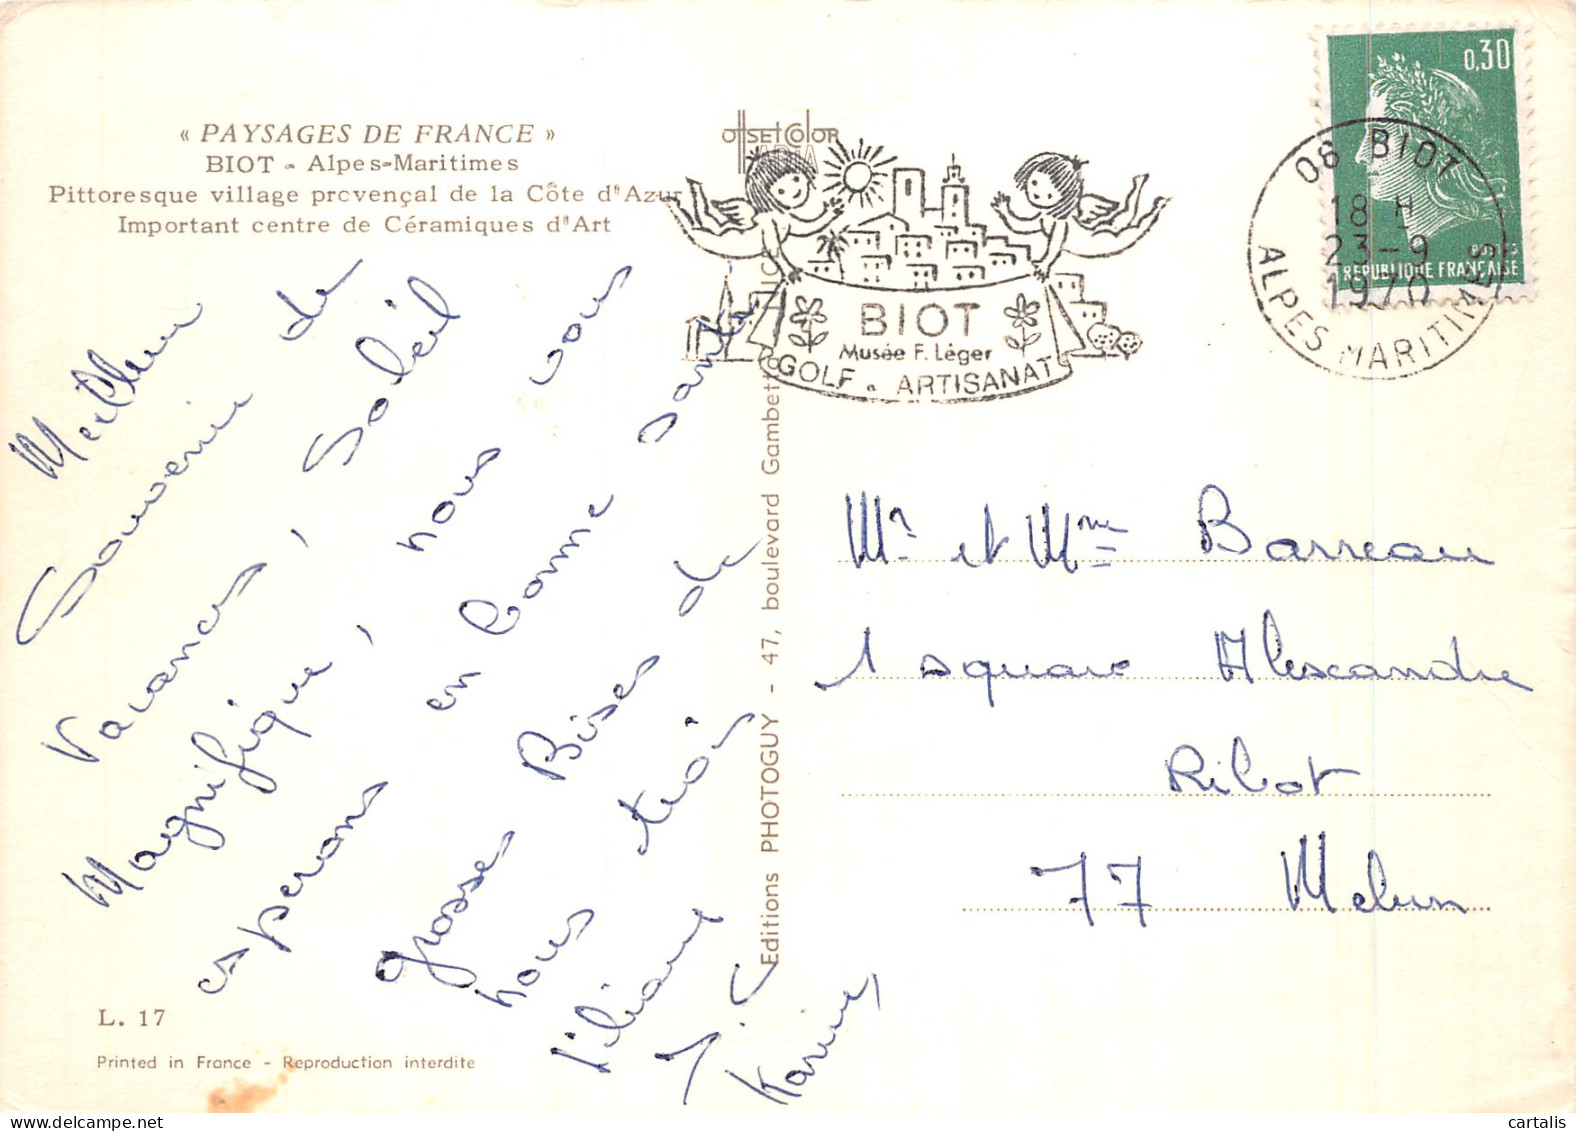 « PAYSAGES DE FRANCE »
BIOT - Alpes-Maritimes
Pittoresque village prcvençal de la Côte d'Azur
Important centre de Céramiques d'Art
Meilleur
Souvenir de
Vacances, Soleil
Magnifique, nous vous
esperons en bonne santé
grosses Bises de
nous trois
Liliane
J.C
Karine
L. 17
Printed in France - Reproduction interdite
offset color
Editions PHOTOGUY - 47, boulevard Gambetta
BIOT
Musée F. Léger
GOLF - ARTISANAT
0,30
POSTES
REPUBLIQUE FRANÇAISE
06 BIOT
18 H
23-9
1970
ALPES MARITIMES
Mr et Mme Barreau
1 square Alexandre
Ribot
77 Melun
cartalis